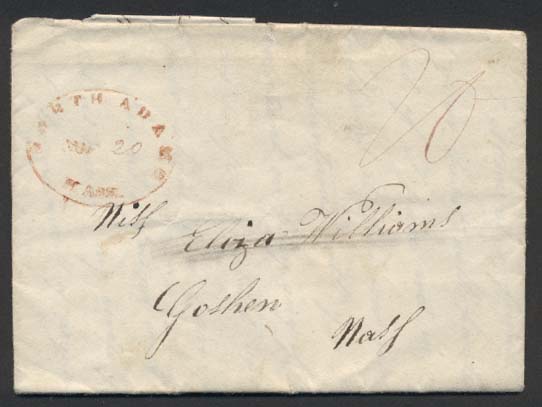 ADAMS
20
MASS.
Miss Eliza Williams
Goshen
Mass